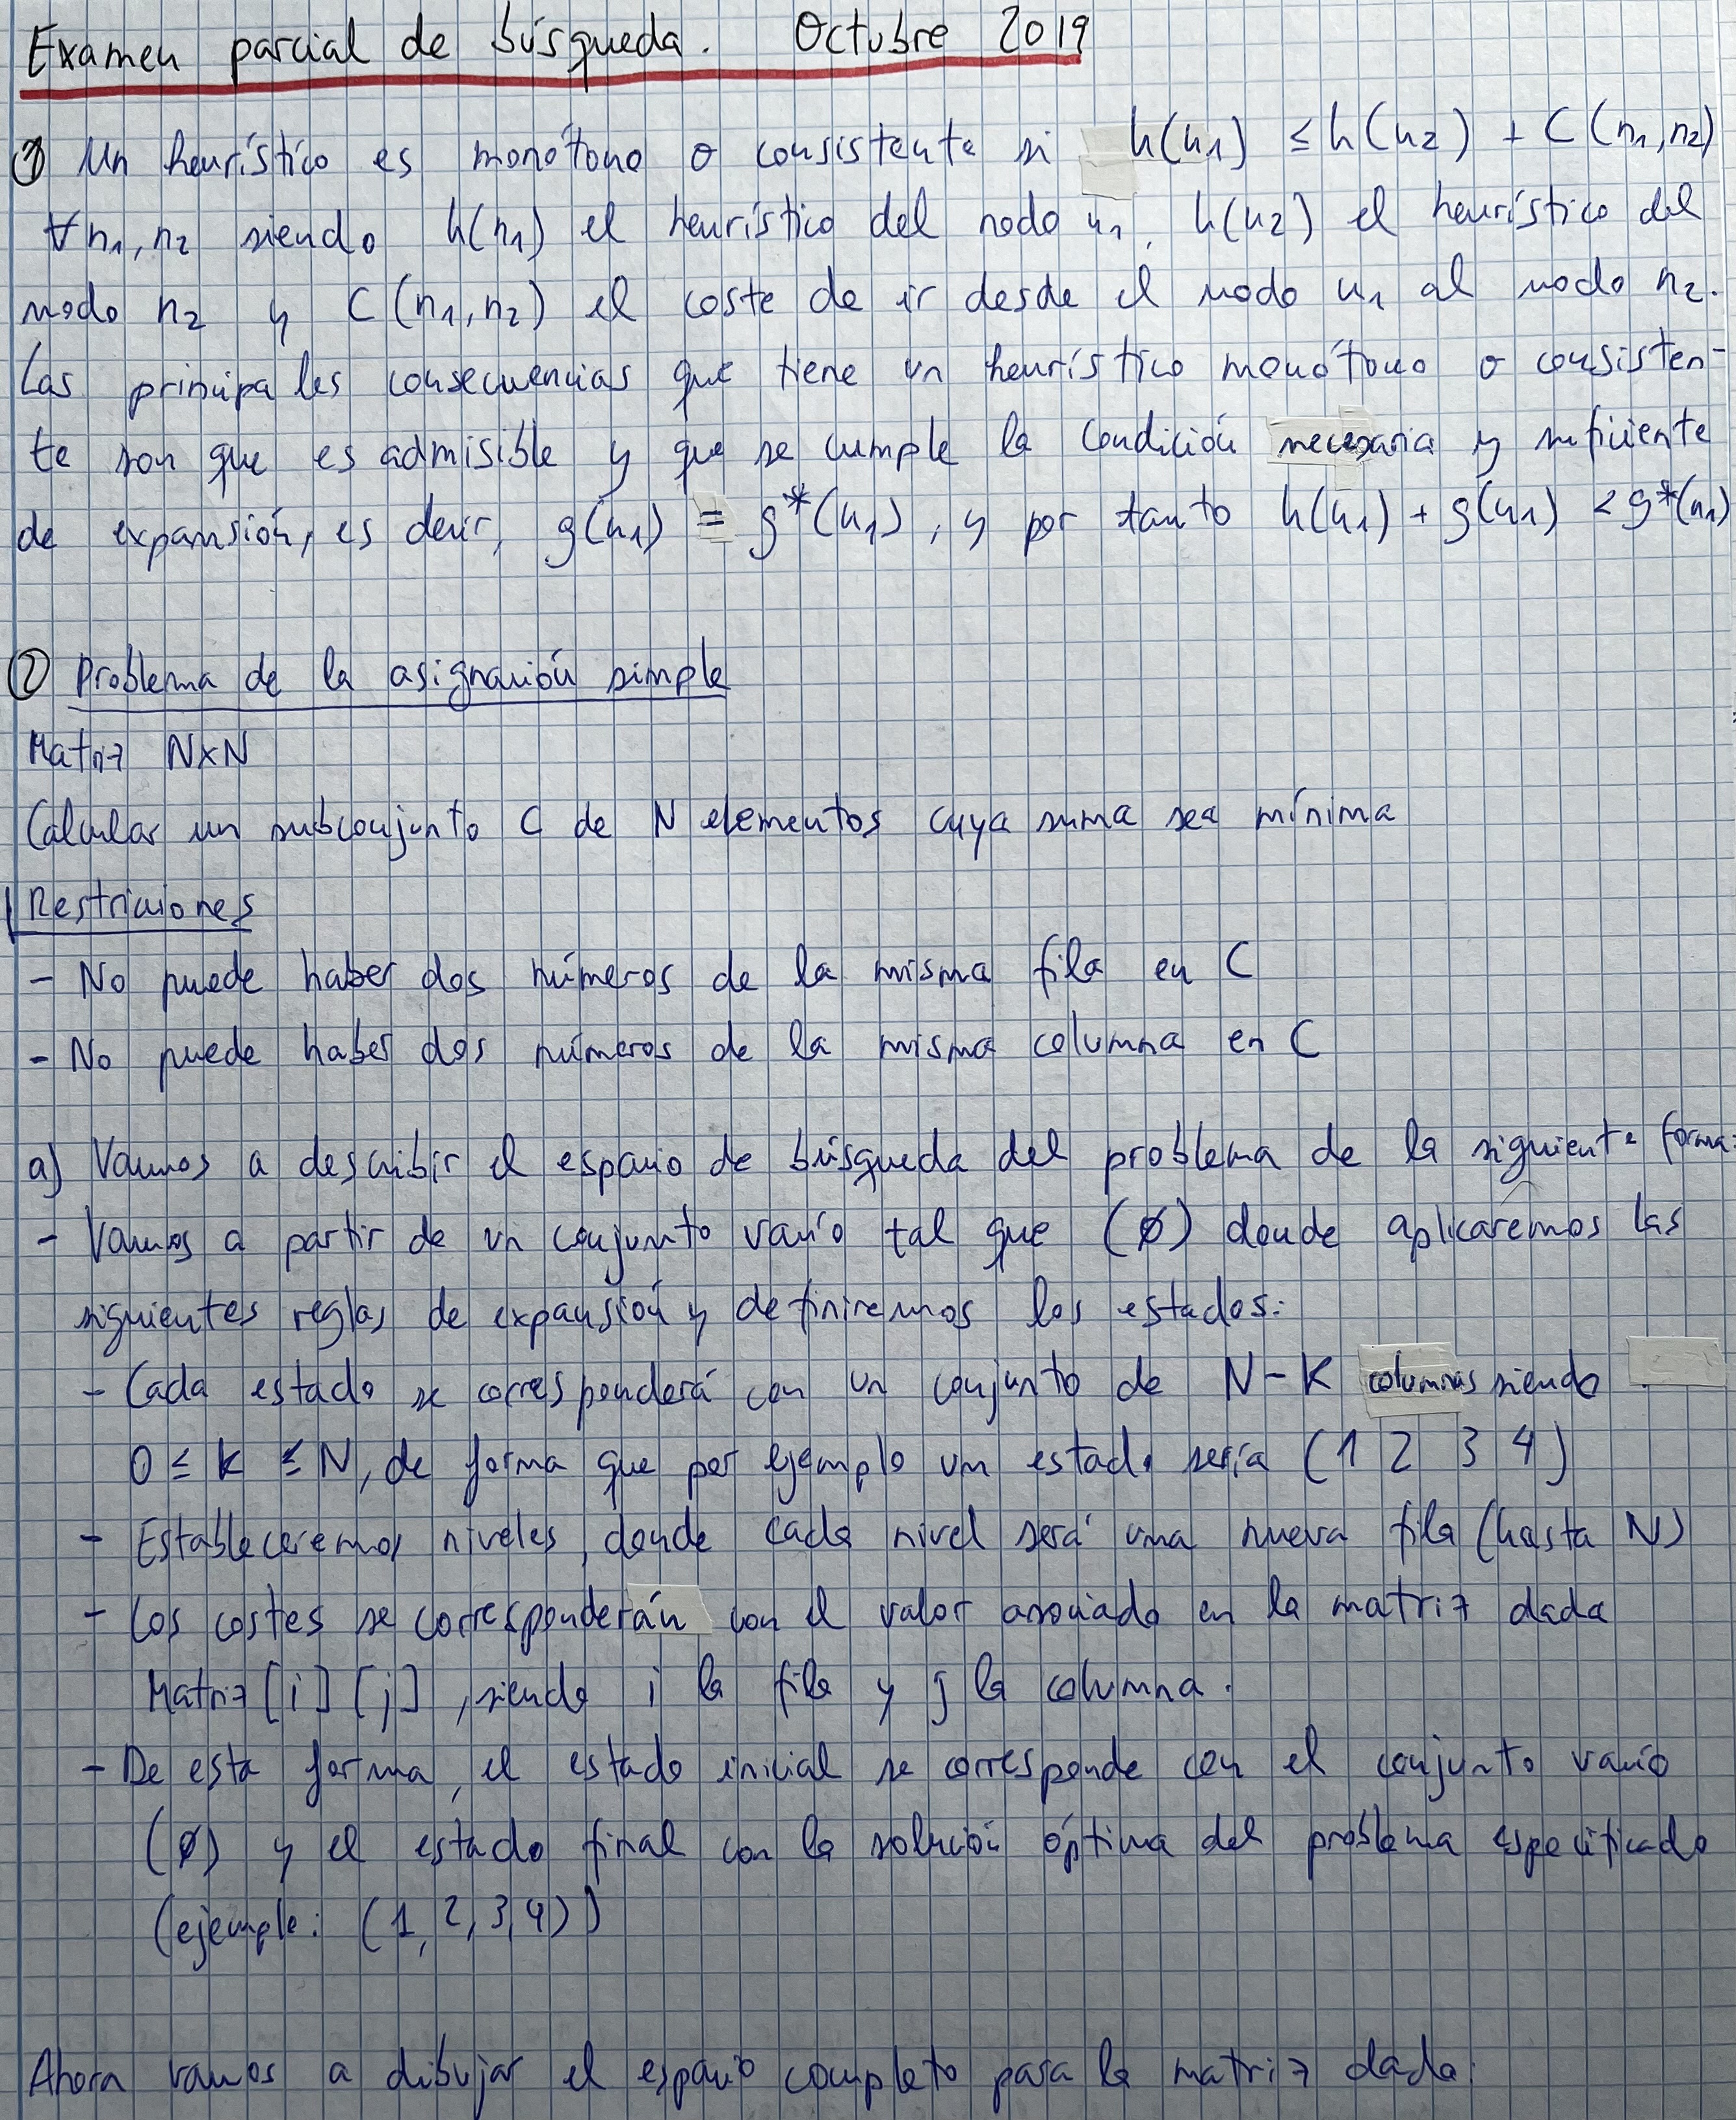 Examen parcial de búsqueda. Octubre 2019
① Un heurístico es monótono o consistente si h(n1) ≤ h(n2) + C(n1,n2)
∀n1,n2 siendo h(n1) el heurístico del nodo n1, h(n2) el heurístico del
nodo n2 y C(n1,n2) el coste de ir desde el nodo n1 al nodo n2.
Las principales consecuencias que tiene un heurístico monótono o consisten-
te son que es admisible y que se cumple la condición necesaria y suficiente
de expansión, es decir, g(n1) = g*(n1), y por tanto h(n1) + g(n1) < g*(n1)
② Problema de la asignación simple
Matriz NxN
Calcular un subconjunto C de N elementos cuya suma sea mínima
Restricciones
- No puede haber dos números de la misma fila en C
- No puede haber dos números de la misma columna en C
a) Vamos a describir el espacio de búsqueda del problema de la siguiente forma:
- Vamos a partir de un conjunto vacío tal que (∅) donde aplicaremos las
siguientes reglas de expansión y definiremos los estados:
- Cada estado se corresponderá con un conjunto de N-K columnas siendo
0 ≤ K ≤ N, de forma que por ejemplo un estado sería (1 2 3 4)
- Estableceremos niveles, donde cada nivel será una nueva fila (hasta N)
- Los costes se corresponderán con el valor asociado en la matriz dada
Matriz [i] [j], siendo i la fila y j la columna.
- De esta forma, el estado inicial se corresponde con el conjunto vacío
(∅) y el estado final con la solución óptima del problema especificado
(ejemplo: (1, 2, 3, 4))
Ahora vamos a dibujar el espacio completo para la matriz dada: